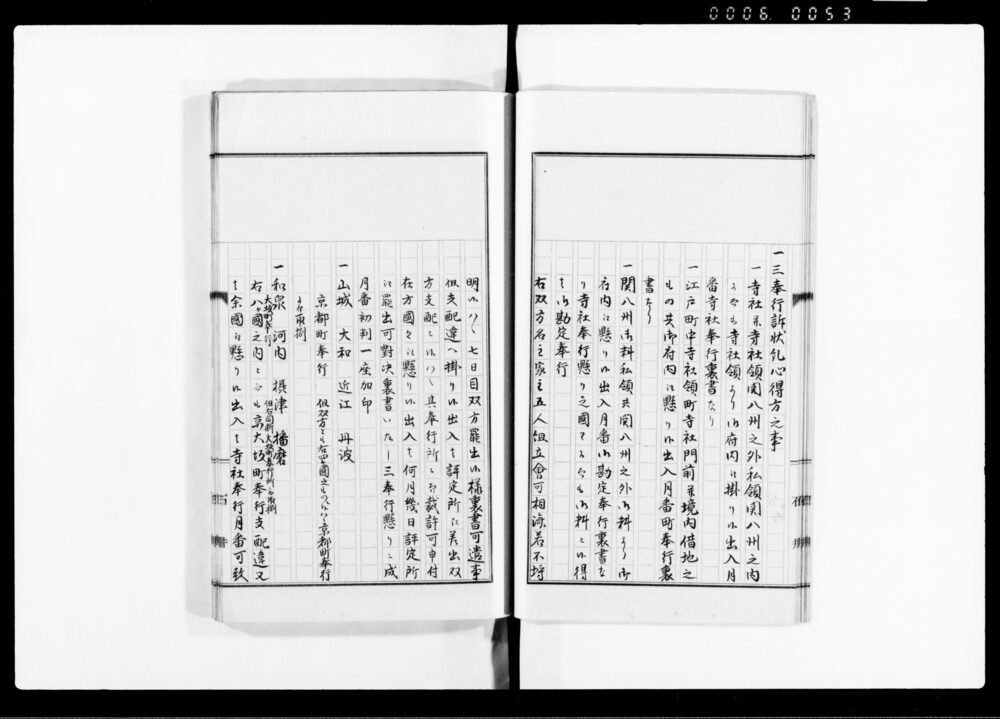 0006. 0053
一三奉行訴状糺心得方之事
一寺社并寺社領関八州之外私領関八州之内
よりも寺社領より御府内に掛り候出入月
番寺社奉行裏書なり
一江戸町中寺社領町寺社門前并境内借地之
もの共御府内に懸り候出入月番町奉行裏
書なり
一関八州御料私領共関八州之外御料より御
府内に懸り候出入月番御勘定奉行裏書な
り寺社奉行懸り之國てるも御料は得
は御勘定奉行
右双方名主家主五人組立會可相済若不埒
明候ハヽ七日目双方罷出候様裏書可遣事
但支配違へ掛り候出入は評定所に差出双
方支配に候ハヽ其奉行所にて裁許可申付
在方國々に懸り候出入は何月幾日評定所
に罷出可對决裏書いたし三奉行懸りに成
月番初判一座加印
一山城 大和 近江 丹波
京都町奉行 但双方とも右四ヶ國之もの候ハヽ京都町奉行
にて取捌
一和泉 河内 摂津 播磨
大坂町奉行 但右同断大坂町奉行所にて取捌
右八ヶ國之内にても京大坂町奉行支配違又
は余國に懸り候出入は寺社奉行月番可致